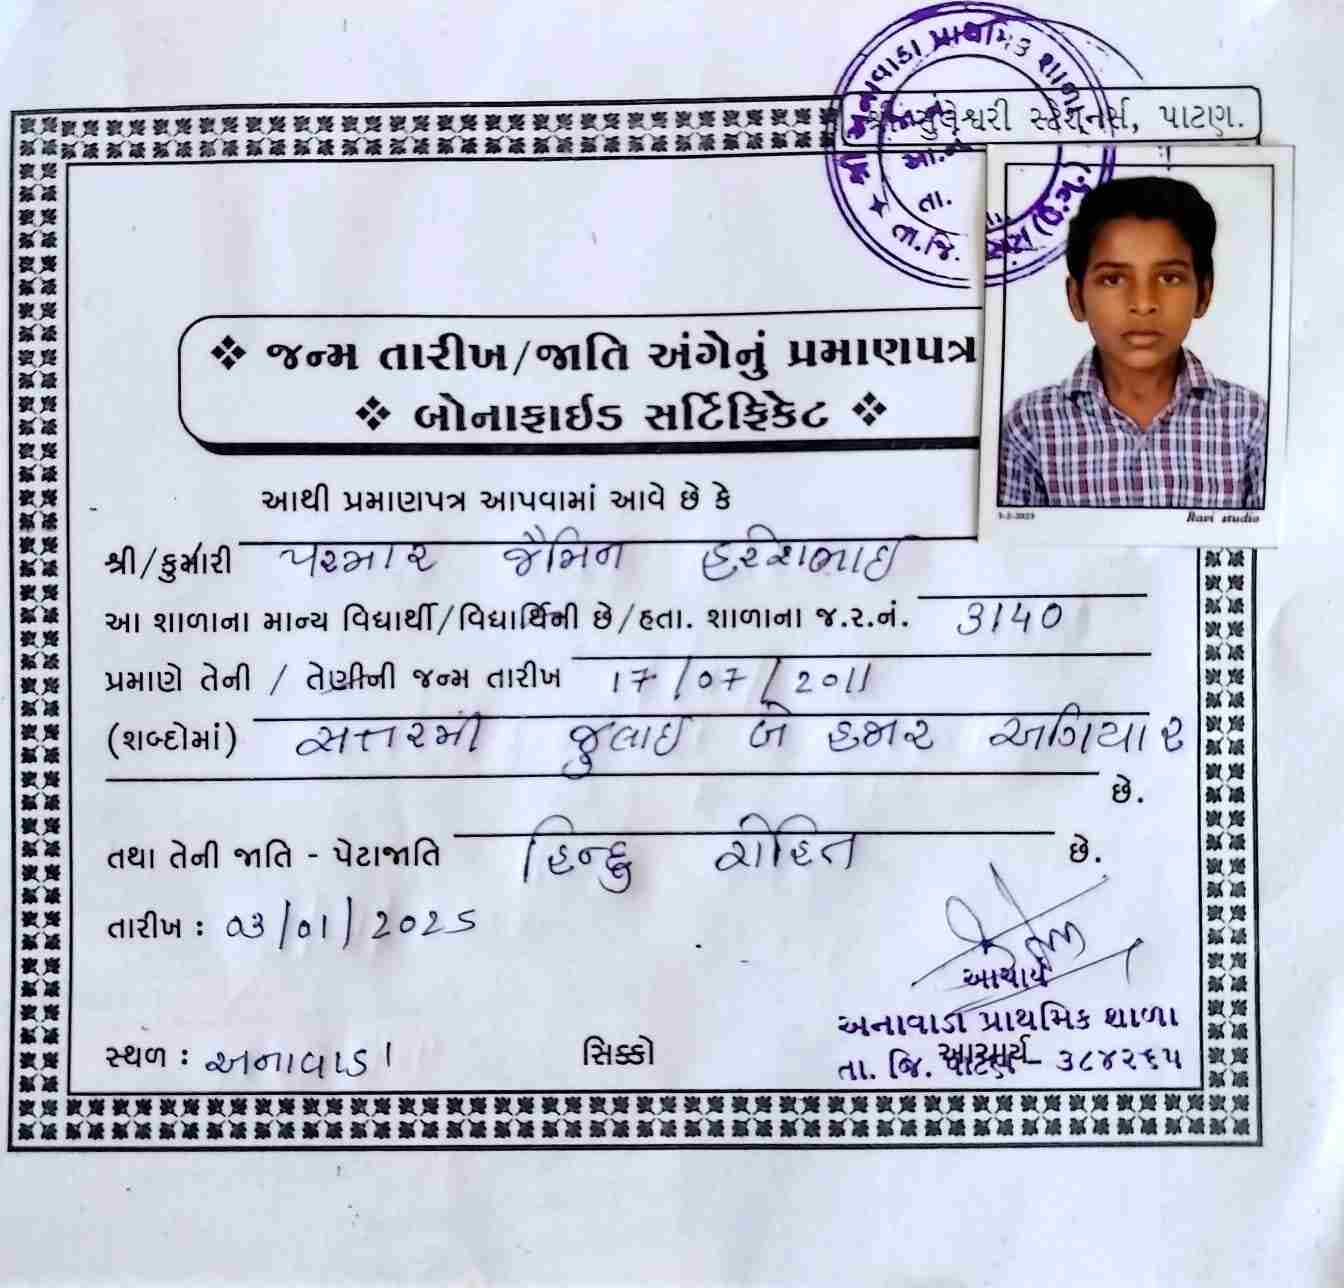 શ્રી અનાવાડા પ્રાથમિક શાળા
તા.જિ.
તા.
સ્ટેશનર્સ, પાટણ.
❖ જન્મ તારીખ/જાતિ અંગેનું પ્રમાણપત્ર
❖ બોનાફાઈડ સર્ટિફિકેટ ❖
આથી પ્રમાણપત્ર આપવામાં આવે છે કે
શ્રી/કુમારી પરમાર જૈમિન હરેશભાઈ
આ શાળાના માન્ય વિદ્યાર્થી/વિદ્યાર્થિની છે/હતા. શાળાના જ.ર.નં. 3140
પ્રમાણે તેની / તેણીની જન્મ તારીખ 17/07/2011
(શબ્દોમાં) સત્તરમી જુલાઈ બે હજાર અગિયાર
છે.
તથા તેની જાતિ - પેટાજાતિ હિન્દુ રોહિત છે.
તારીખ : 03/01/2025
આચાર્ય
અનાવાડા પ્રાથમિક શાળા
તા. જિ. પાટણ - ૩૮૪૨૬૫
સ્થળ : અનાવાડા
સિક્કો
આચાર્ય
Ravi studio